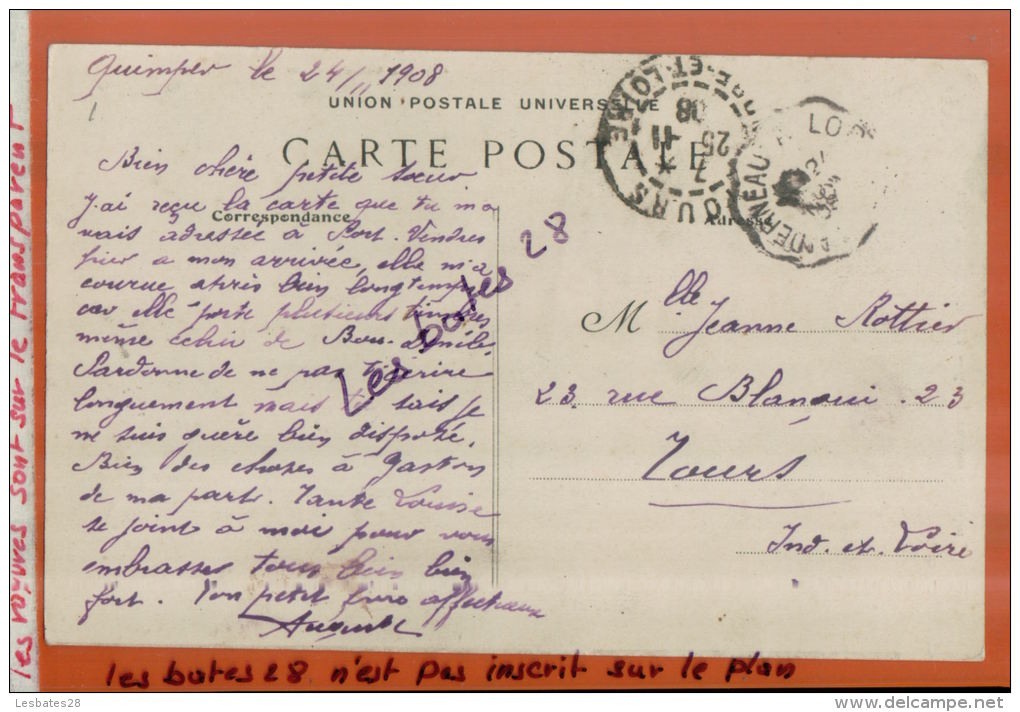 Quimper le 24/11 1908
UNION POSTALE UNIVERSELLE
CARTE POSTALE
Correspondance
Adresse
Bien chère petite sœur
J'ai reçu la carte que tu m'a
vais adressée à Port-Vendres
hier a mon arrivée, elle m'a
courue après bien longtemps
car elle porte plusieurs timbres
même celui de
Pardonne de ne pas t'écrire
longuement mais tu sais je
ne suis guère bien disposé.
Bien des choses à Gaston
de ma part. Tante Louise
se joint à moi pour vous
embrasser tous bien bien
fort. Ton petit frère affectueux
Auguste
Les bates 28
Mlle Jeanne Rottier
23 rue Blanqui 23
Tours
Ind. et. Loire
TOURS INDRE-ET-LOIRE
7 *
25 11
08
LANDERNEAU
24
les rayures sont sur le transparent
les bates 28 n'est pas inscrit sur le plan
Lesbates28
www.delcampe.net